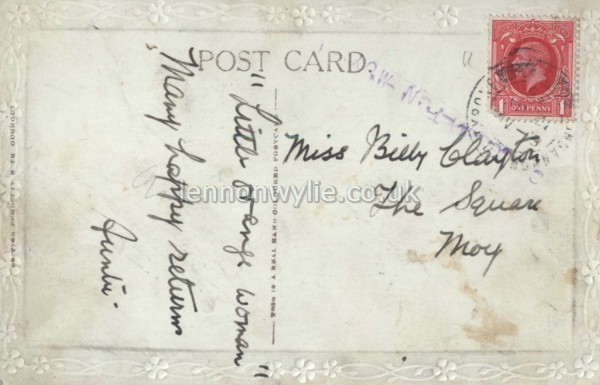 POST CARD.
"Little orange woman"
Many happy returns
Auntie.
Miss Billy Clayton
The Square
Moy
THIS IS A REAL HAND COLOURED POSTCARD
1 1
ONE PENNY
lennonwylie.co.uk